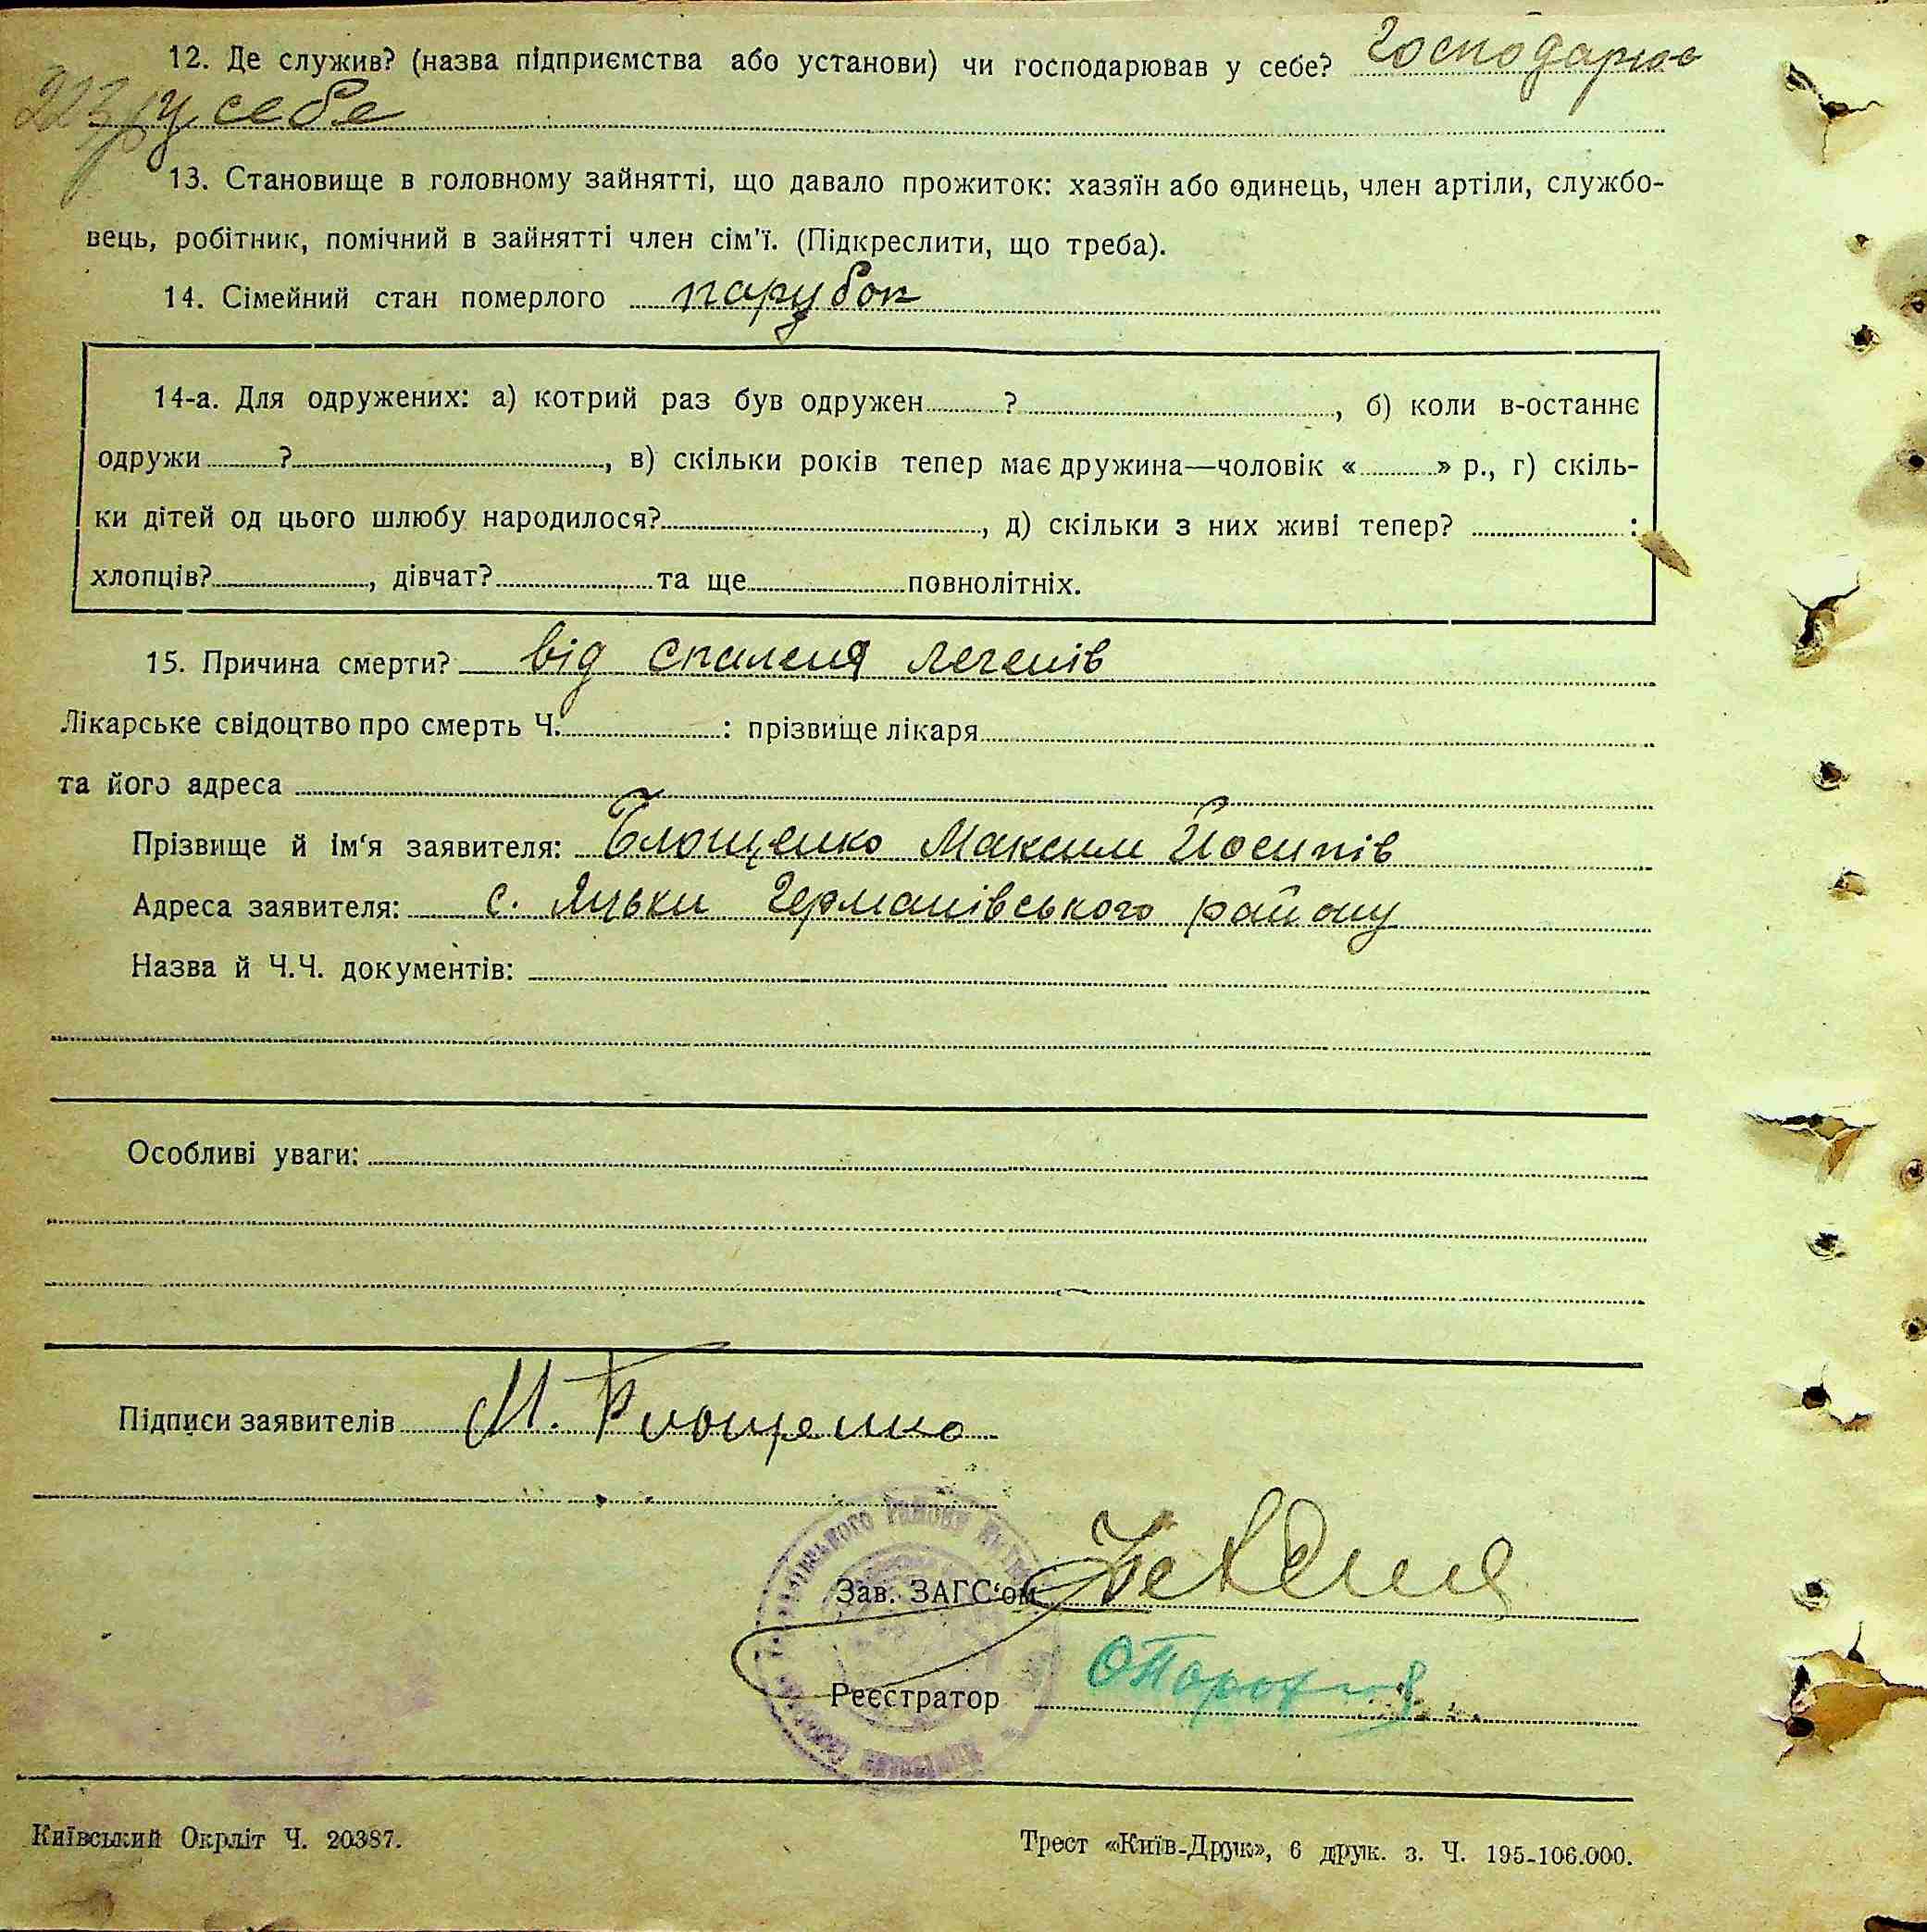 12. Де служив? (назва підприємства або установи) чи господарював у себе? Господарює
223 у себе
13. Становище в головному зайнятті, що давало прожиток: хазяїн або одинець, член артіли, службо-
вець, робітник, помічний в зайнятті член сім'ї. (Підкреслити, що треба).
14. Сімейний стан померлого парубок
14-а. Для одружених: а) котрий раз був одружен ?, б) коли в-останнє
одружи ?, в) скільки років тепер має дружина—чоловік « » р., г) скіль-
ки дітей од цього шлюбу народилося?, д) скільки з них живі тепер? :
хлопців?, дівчат? та ще повнолітніх.
15. Причина смерти? від спаленя легенів
Лікарське свідоцтво про смерть Ч. : прізвище лікаря
та його адреса
Прізвище й ім'я заявителя: Блощенко Максим Йосипів
Адреса заявителя: с. Яцьки Германівського району
Назва й Ч.Ч. документів:
Особливі уваги:
Підписи заявителів М. Блощенко
Зав. ЗАГС'ом
Реєстратор
Київський Окрліт Ч. 20387.
Трест «Київ-Друк», 6 друк. з. Ч. 195-106.000.